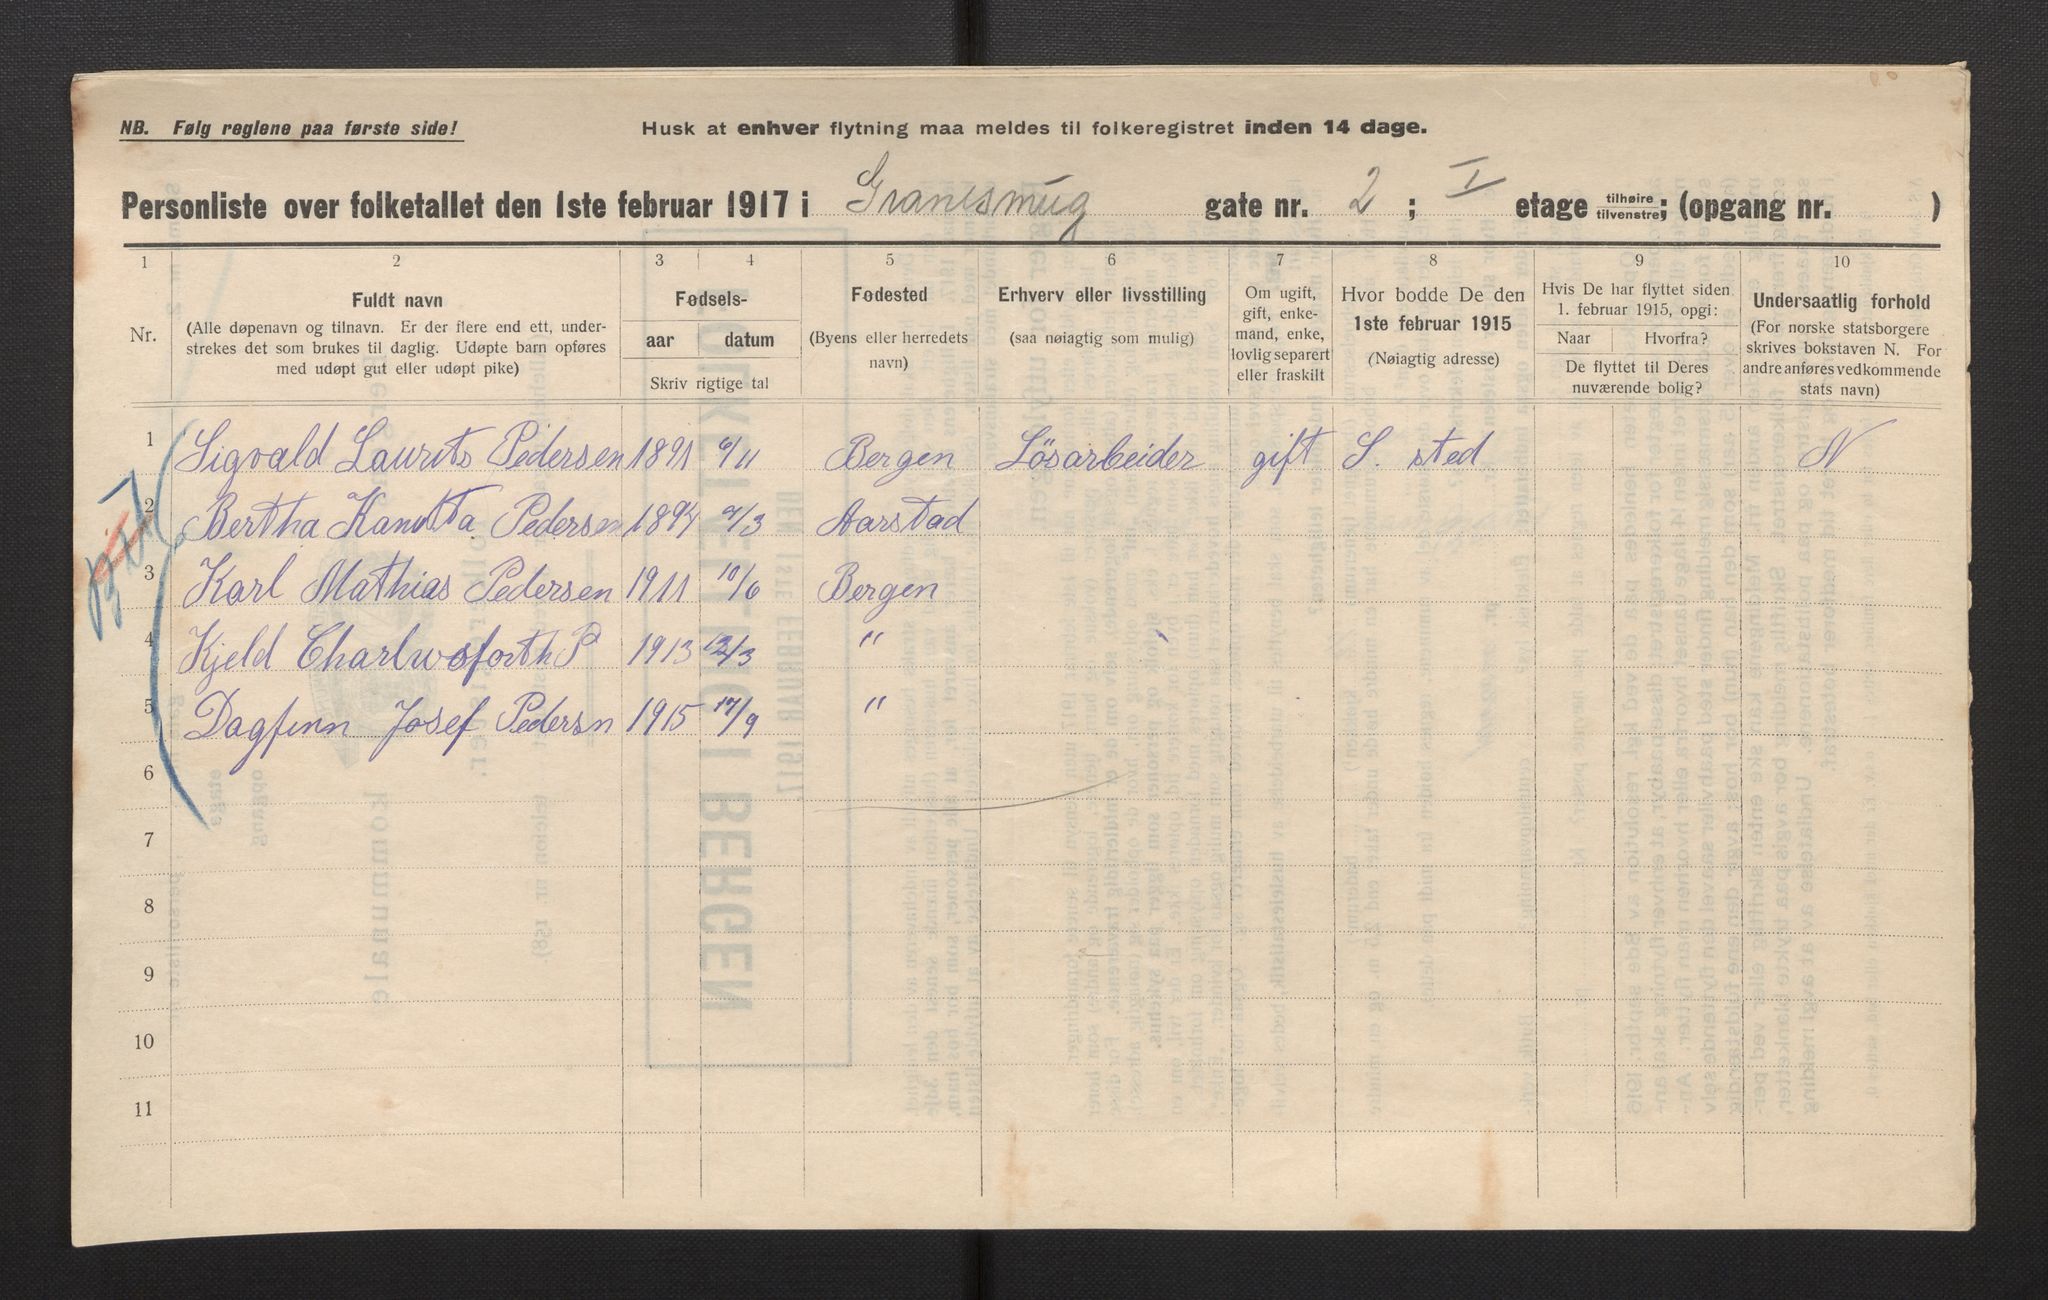 NB. Følg reglene paa første side!
Husk at enhver flytning maa meldes til folkeregistret inden 14 dage.
Personliste over folketallet den 1ste februar 1917 i Granesmug gate nr. 2 ; I etage tilhøire tilvenstre; (opgang nr. )
1 2 3 4 5 6 7 8 9 10
Nr.
Fuldt navn
(Alle døpenavn og tilnavn. Er der flere end ett, under-
strekes det som brukes til daglig. Udøpte barn opføres
med udøpt gut eller udøpt pike)
Fødsels-
aar datum
Skriv rigtige tal
Fødested
(Byens eller herredets
navn)
Erhverv eller livsstilling
(saa nøiagtig som mulig)
Om ugift,
gift, enke-
mand, enke,
lovlig separert
eller fraskilt
Hvor bodde De den
1ste februar 1915
(Nøiagtig adresse)
Hvis De har flyttet siden
1. februar 1915, opgi:
Naar Hvorfra?
De flyttet til Deres
nuværende bolig?
Undersaatlig forhold
(For norske statsborgere
skrives bokstaven N. For
andre anføres vedkommende
stats navn)
1 Sigvald Laurits Pedersen 1891 9/11 Bergen Løsarbeider gift S. sted N
2 Bertha Kanutta Pedersen 1894 9/3 Aarstad
3 Karl Mathias Pedersen 1911 10/6 Bergen
4 Kjeld Charlwsforth P 1913 12/3 "
5 Dagfinn Josef Pedersn 1915 17/9 "
6
7
8
9
10
11